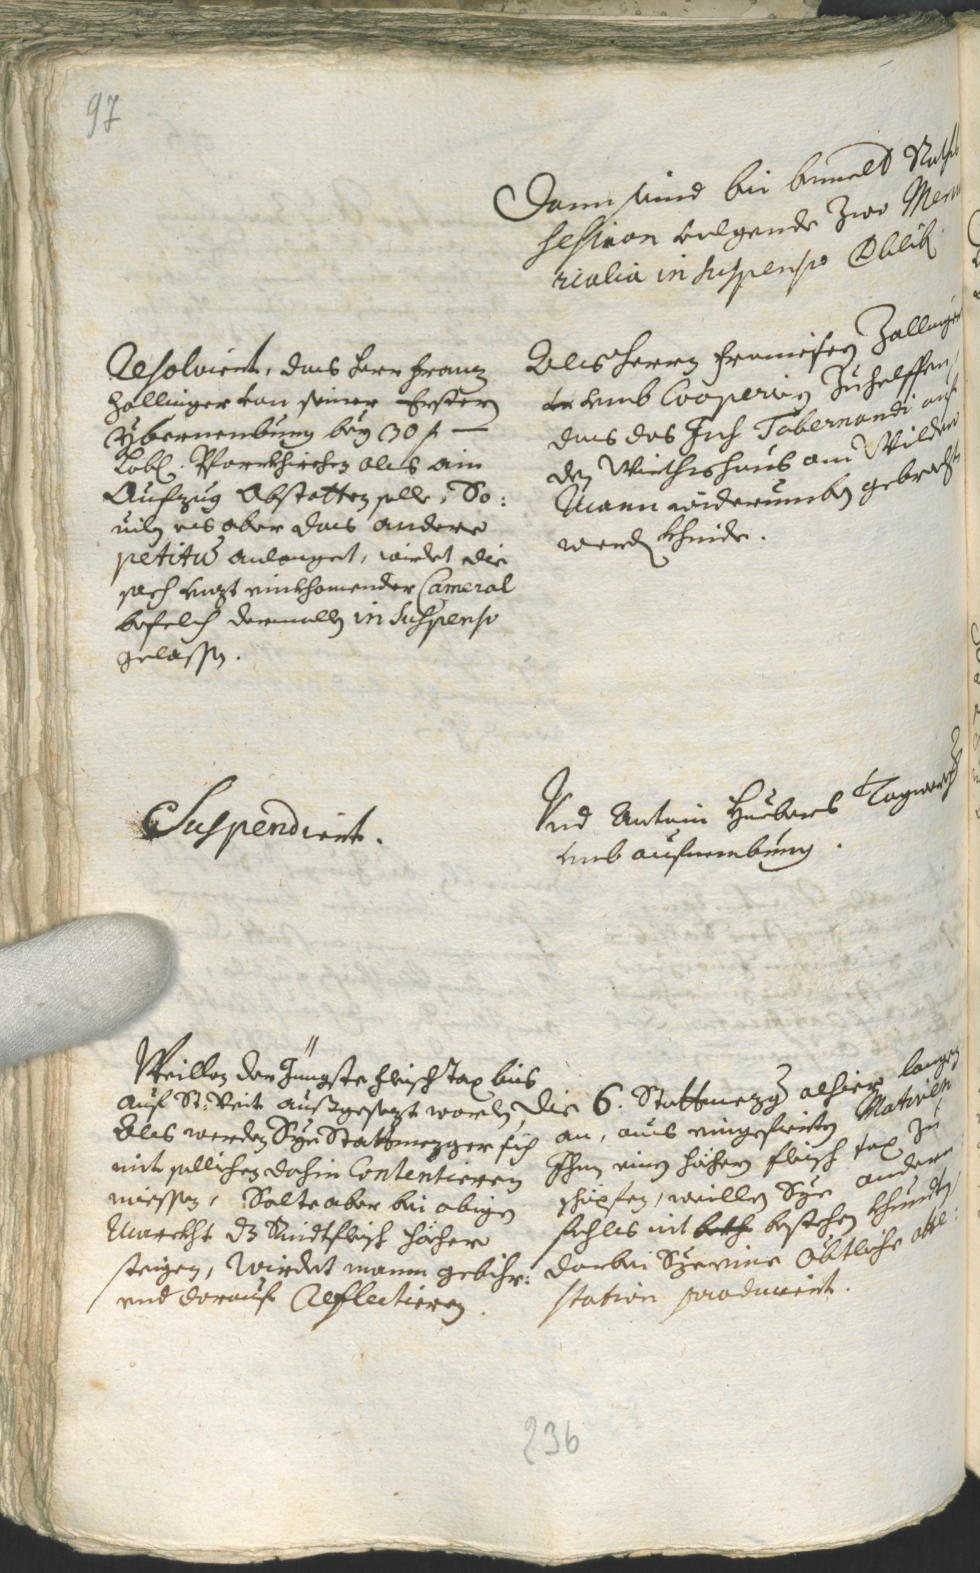 97
Dann seind bei bemelt Raths
session volgende zwo Memo
rialia in suspenso Oblib
Resolviert, das herr Franz
Zallinger von seiner Ersten
Ybernembung die 30 f —
Lobl. Pfarrkhirchen als ain
Aufzug Abstatten solle, So:
vil es aber das andere
petitum anlanget, wirdet die
sach einkhomender Cameral
befelch dermallen in Suspenso
gelassen.
Als Herrn Francisen Zallinger
umb Cooperien zuhelffen,
das das Jus Tabernandi auf
den Wirthshaus am Wilden
Mann widerumben gebracht
werden khinde.
Suspendiert.
Und Antoni Huebers Tagwerch
umb aufnembung.
Weillen der Jüngste fleisch Tax bis
auf St: Veit außgesezt worden,
Als werden Sye Stattmezger sich
mit sollichen dahin Contentieren
miessen, Solte aber bei obigen
Marckht dz Rindtfleisch höcher
steigen, Wirdet mann gebihr:
end darauf Reflectieren.
Die 6. Stattmezger alhier langen
an, aus eingefierten Motiven
Ihnen einen höhern fleisch tax zu
schöpfen, weillen Sye andern
fahls nit bestehen khundten,
darbei Sye eine Äbtliche atte:
station producirt.
236